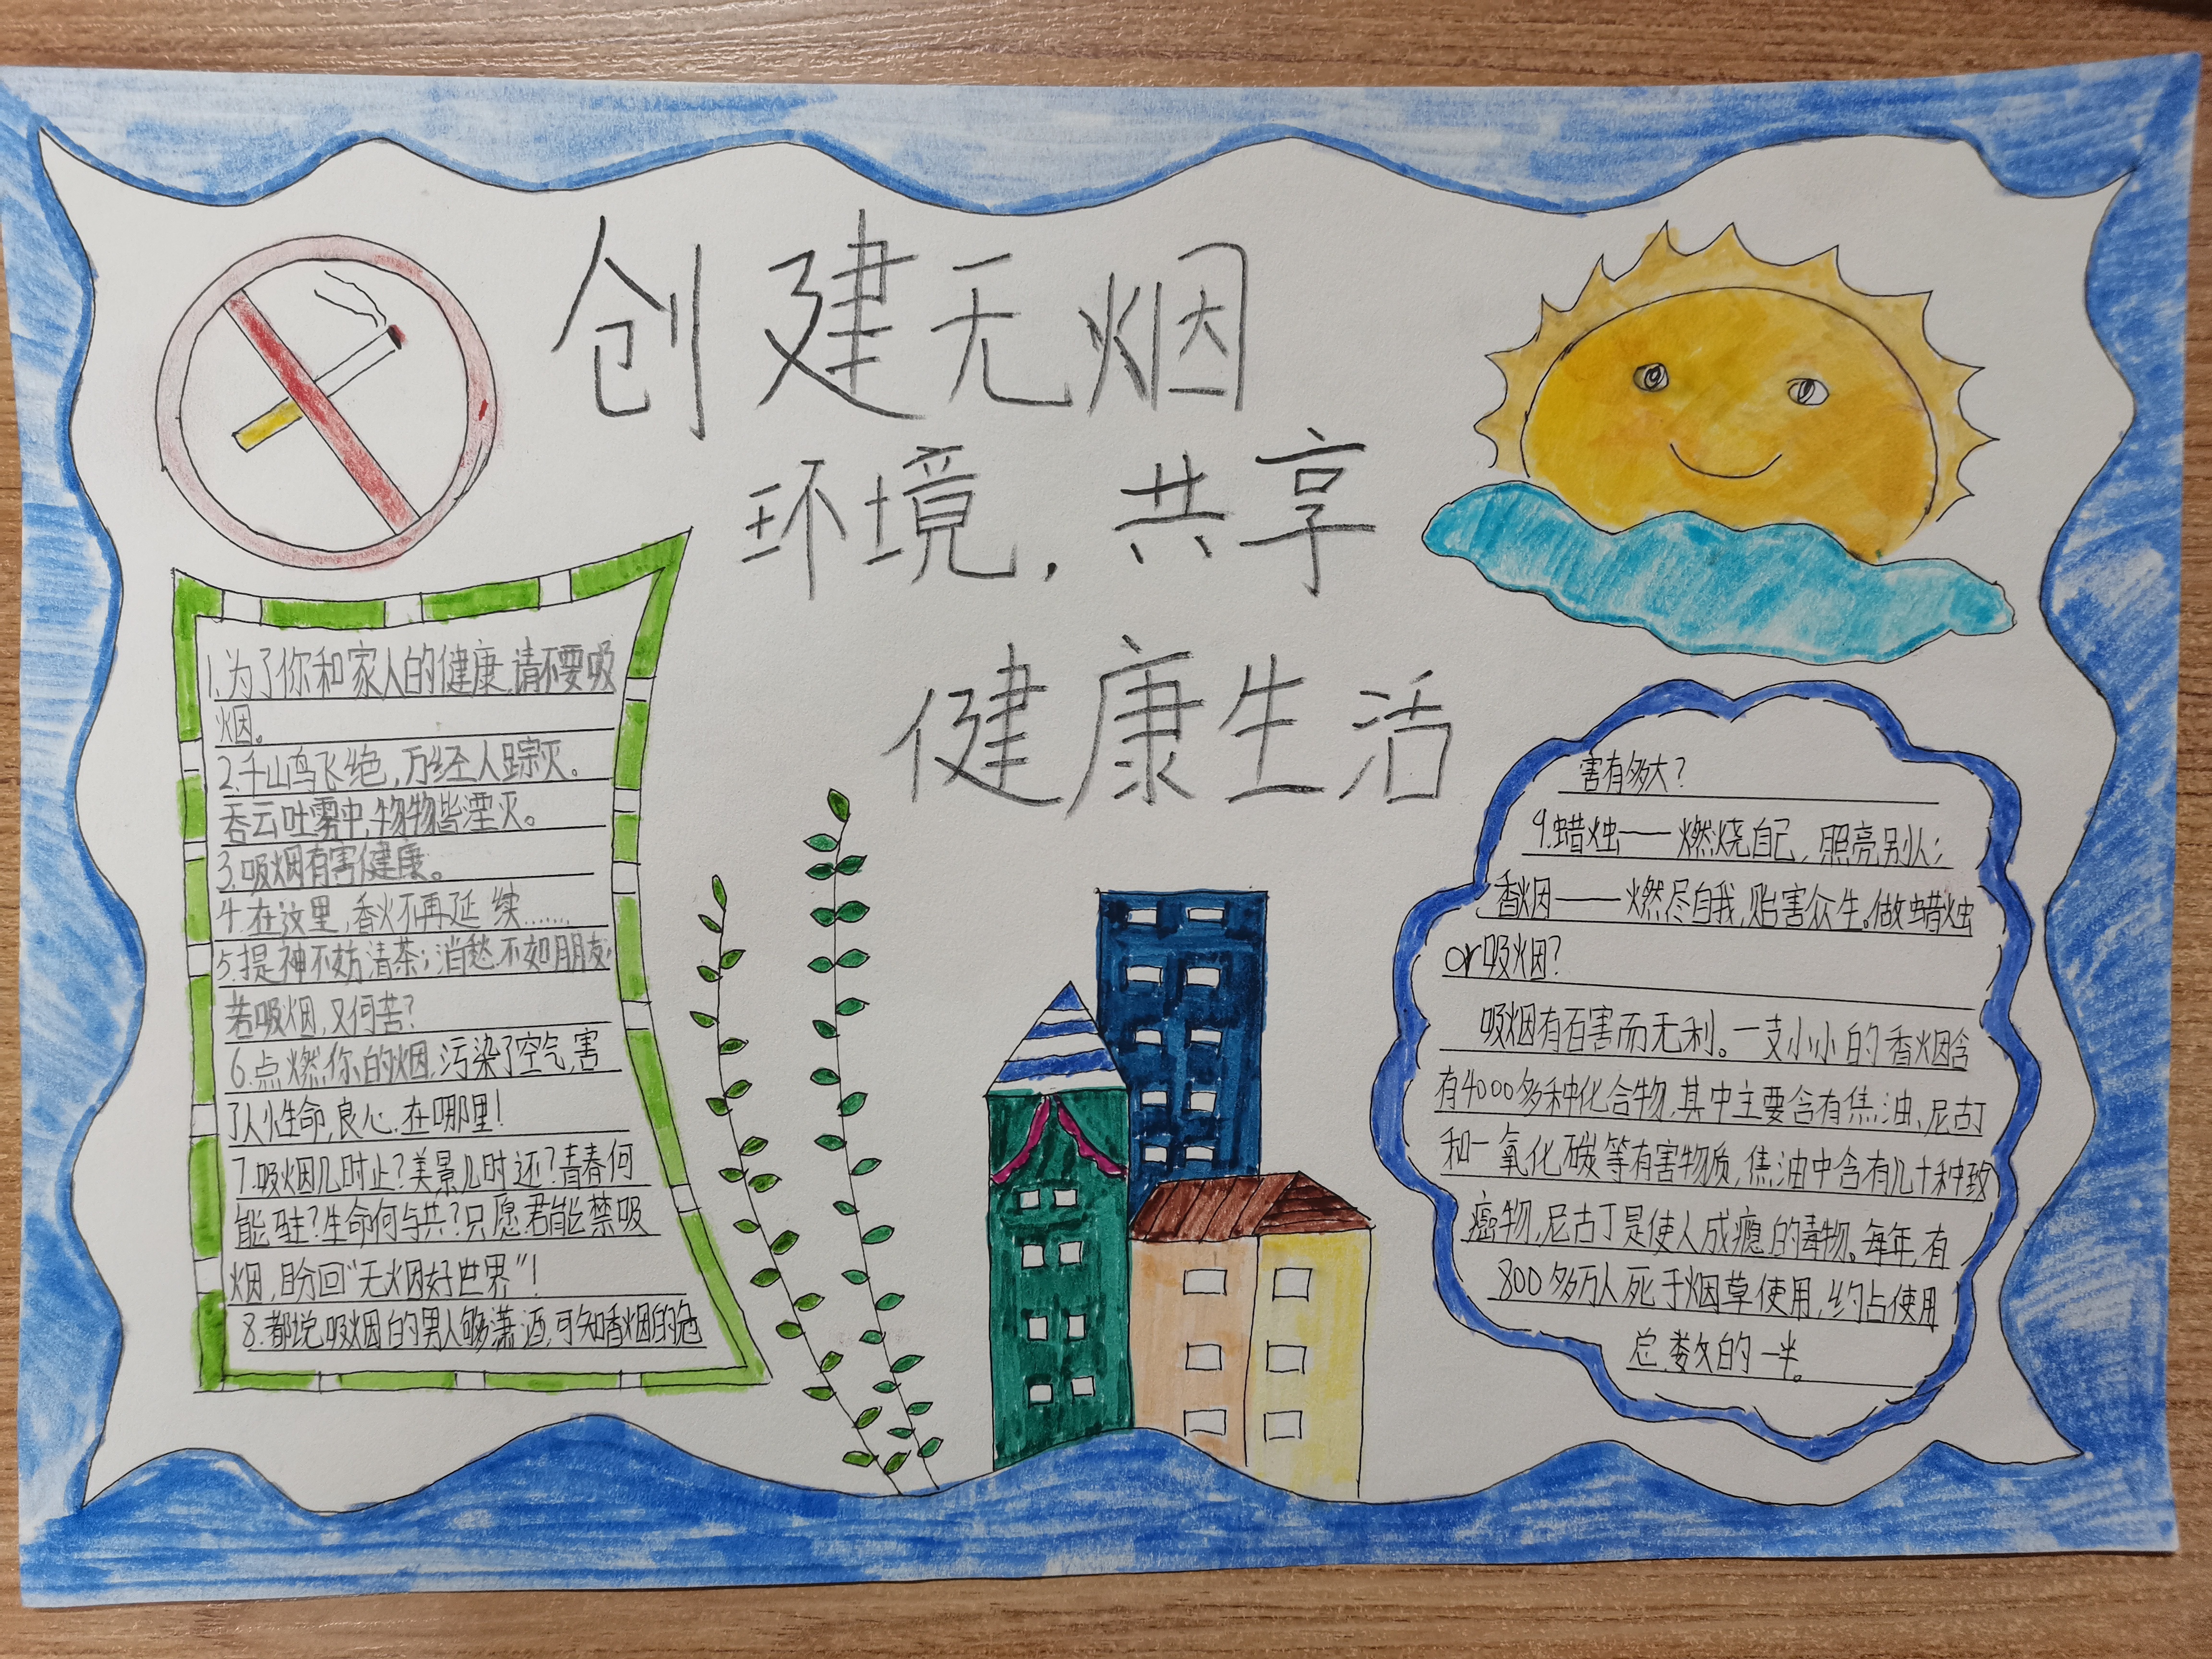 创建无烟
环境，共享
健康生活
1.为了你和家人的健康,请不要吸
烟。
2.千山鸟飞绝,万径人踪灭。
吞云吐雾中,物物皆湮灭。
3.吸烟有害健康。
4.在这里,香火不再延续……
5.提神不妨清茶;消愁不如朋友;
若吸烟,又何苦?
6.点燃你的烟,污染了空气,害
了人性命,良心.在哪里!
7.吸烟几时止?美景几时还?青春何
能驻?生命何与共?只愿君能禁吸
烟,盼回“无烟好世界”!
8.都说吸烟的男人够潇洒,可知香烟的危
害有多大?
9.蜡烛——燃烧自己,照亮别人;
香烟——燃尽自我,贻害众生。做蜡烛
or吸烟?
吸烟有百害而无利。一支小小的香烟含
有4000多种化合物,其中主要含有焦油、尼古丁
和一氧化碳等有害物质,焦油中含有几十种致
癌物,尼古丁是使人成瘾的毒物。每年,有
800多万人死于烟草使用,约占使用
总数的一半。